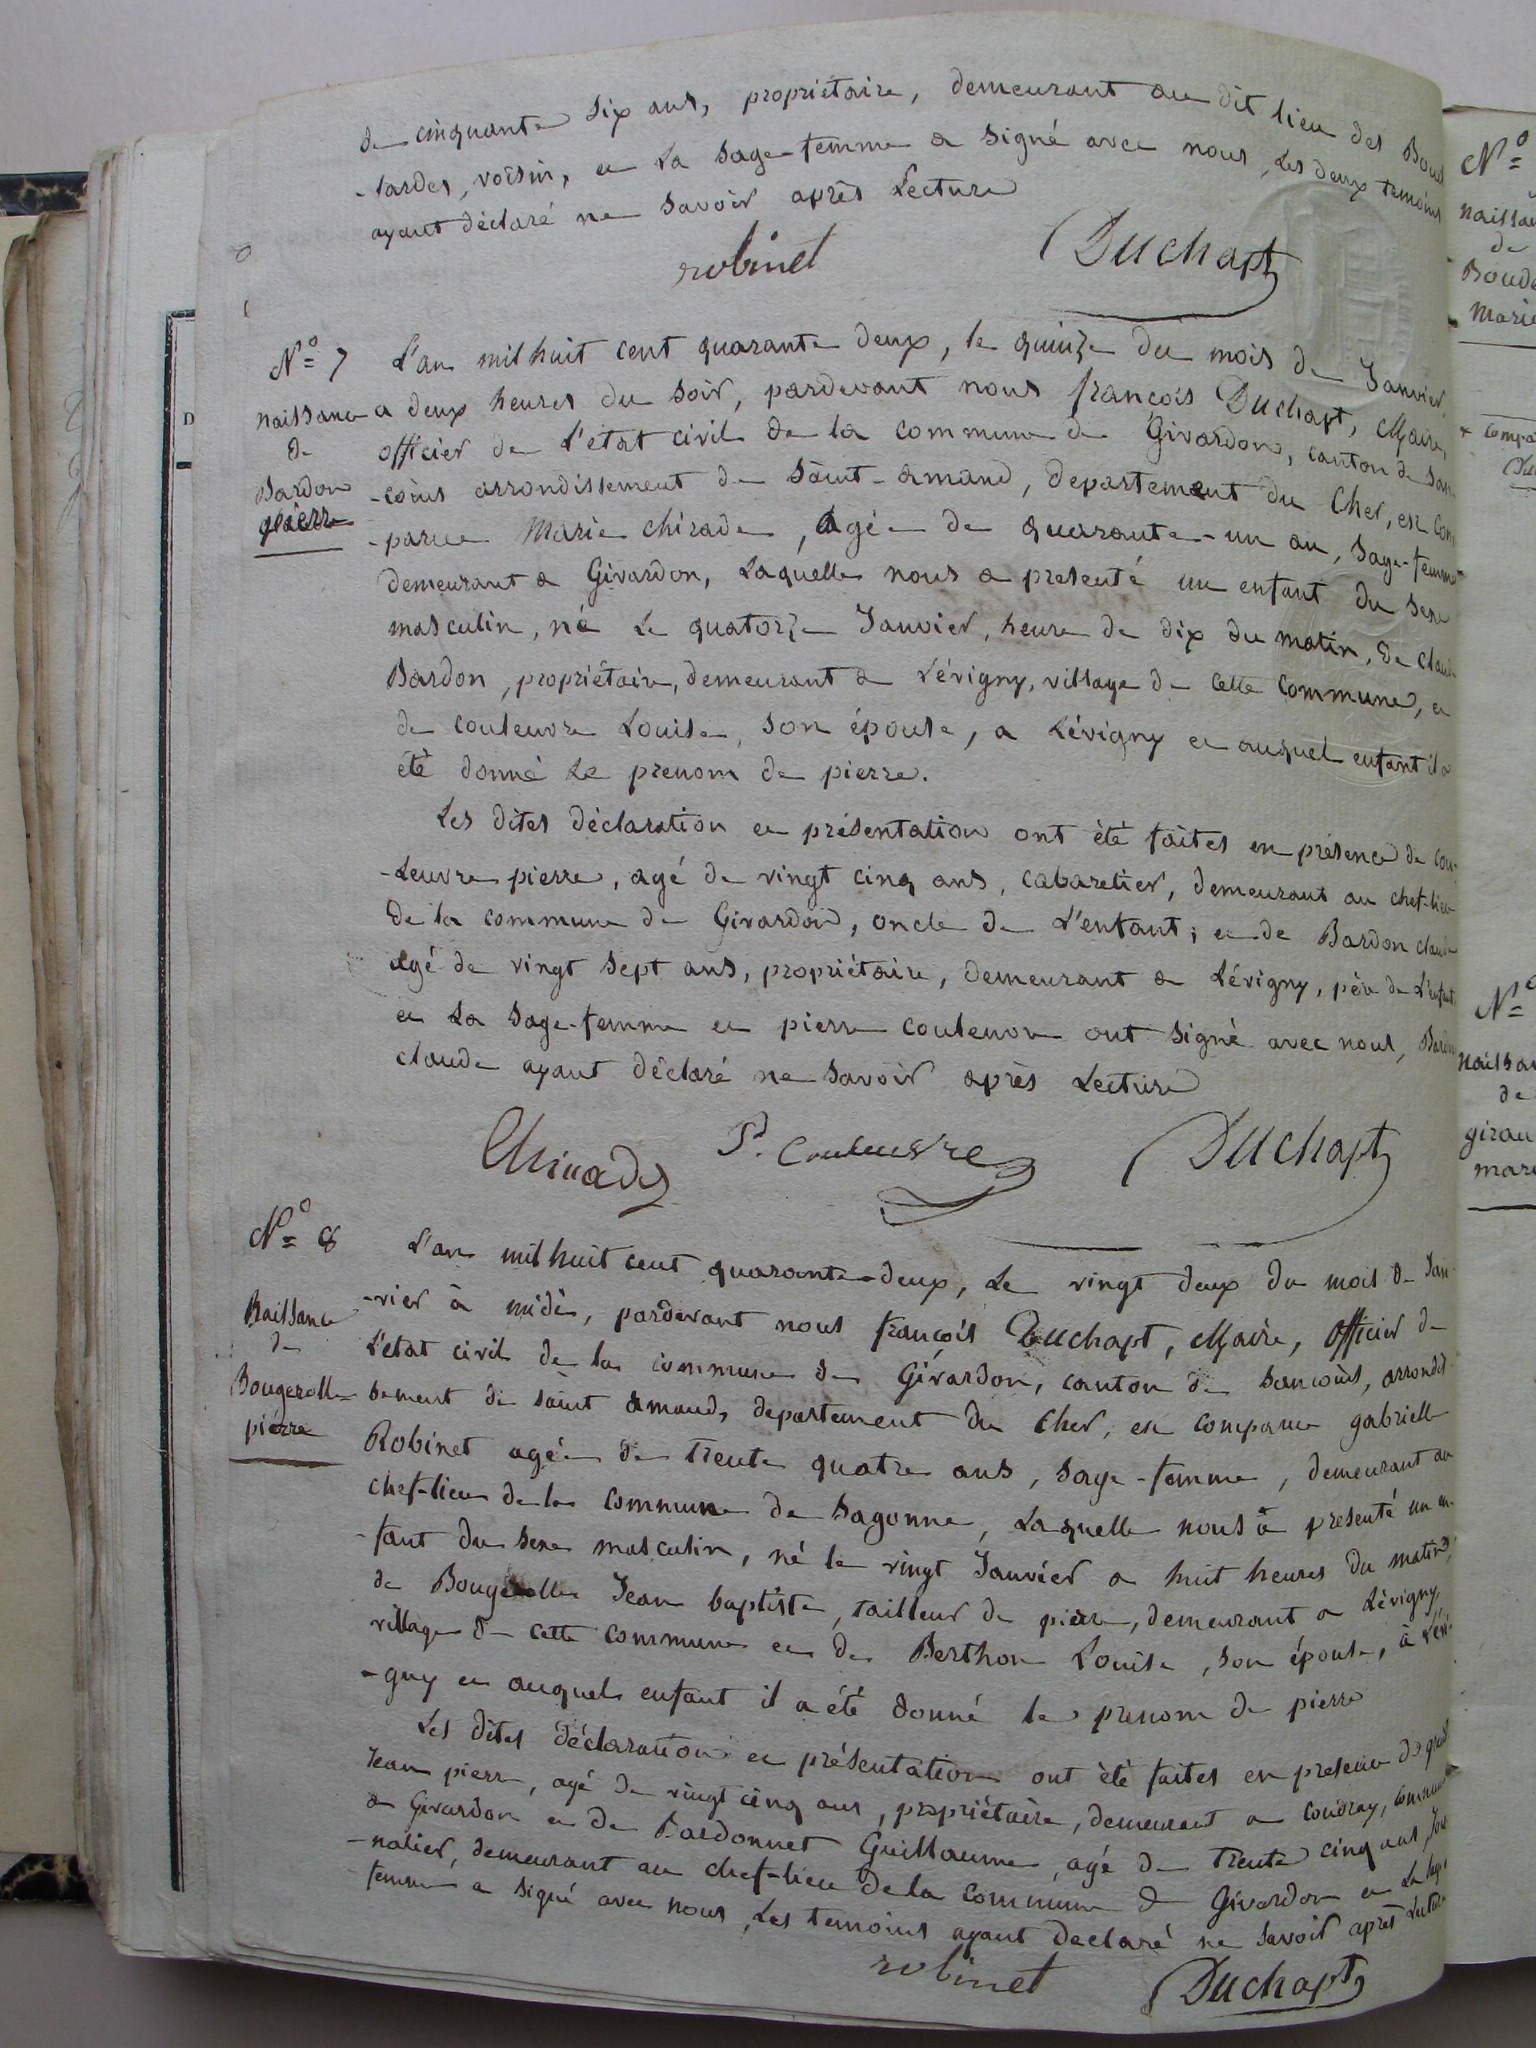 de cinquante six ans, propriétaire, demeurant au dit lieu des Bou
-tardes, voisin, et La sage-femme a signé avec nous, Les deux temoins
ayant déclaré ne savoir après Lecture
robinet Duchapt
N.o 7
naissance
de
Bardon
pierre
L'an mil huit cent quarante deux, le quinze du mois de Janvier,
a deux heures du soir, pardevant nous françois Duchapt, Maire,
officier de L'état civil de la commune de Givardon, canton de San-
-coins arrondissement de Saint-amand, departement du Cher, est com
-parue Marie Chirade, Agée de quarante-un an, Sage-femme
demeurant a Givardon, Laquelle nous a presenté un enfant du sexe
masculin, né Le quatorze Janvier, heure de dix du matin, de claude
Bardon, propriétaire, demeurant a Lévigny, village de cette commune, et
de couleuvre Louise, son épouse, a Lévigny et auquel enfant il a
été donné Le prenom de pierre.
Les dites déclaration et présentation ont été faites en présence de Cou-
-Leuvre pierre, agé de vingt cinq ans, cabaretier, demeurant au chef-lieu
de la commune de Givardon, oncle de L'enfant; et de Bardon claude
agé de vingt sept ans, propriétaire, demeurant a Lévigny, père de L'enfant
et La Sage-femme et pierre couleuvre ont signé avec nous, Bardon
claude ayant déclaré ne savoir après Lecture
Chirade P. Couleuvre Duchapt
N.o 8
Naissance
de
Bougerolle
pierre
L'an mil huit cent quarante-deux, Le vingt deux du mois de Jan-
-vier à midi, pardevant nous françois Duchapt, Maire, Officier de
L'état civil de la commune de Givardon, canton de Sancoins, arrondis-
sement de saint amand, departement du Cher, est comparue gabrielle
Robinet agée de trente quatre ans, sage-femme, demeurant au
chef-lieu de la commune de Sagonne, Laquelle nous a presenté un en-
-fant du sexe masculin, né le vingt Janvier a huit heures du matin,
de Bougerolle Jean baptiste, tailleur de pierre, demeurant a Lévigny,
village de cette commune et de Berthon Louise, son épouse, à Lévi-
-gny et auquel enfant il a été donné le prenom de pierre
Les dites déclaration et présentation ont été faites en presence de
Jean pierre, agé de vingt cinq ans, propriétaire, demeurant a Coudray, commune
a Givardon et de Bardonnet Guillaume, agé de trente cinq ans, Jour
-nalier, demeurant au chef-lieu de la commune de Givardon et La sage
femme a signé avec nous, Les temoins ayant declaré ne savoir après Lecture
robinet Duchapt
N.o
naissan
de
Boude
Marie
N.o
naissan
de
girau
mari